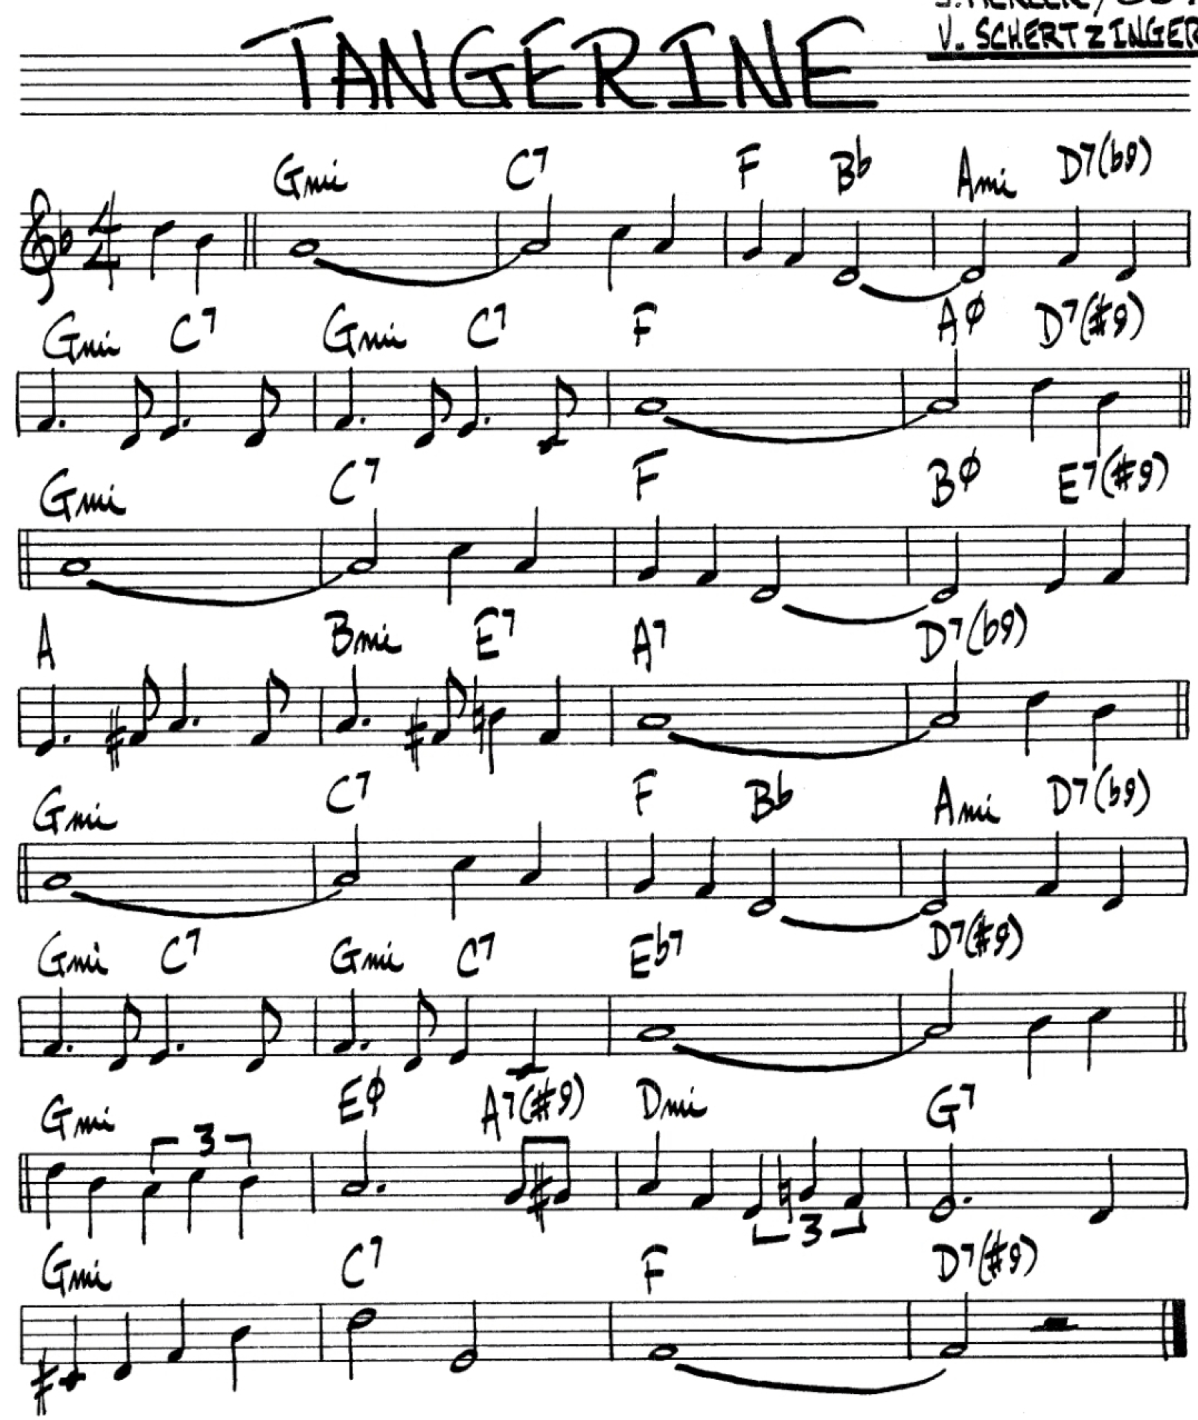 V. SCHERTZINGER
TANGERINE
4
4
Gmi C7 F Bb Ami D7(b9)
Gmi C7 Gmi C7 F AØ D7(#9)
Gmi C7 F BØ E7(#9)
A Bmi E7 A7 D7(b9)
Gmi C7 F Bb Ami D7(b9)
Gmi C7 Gmi C7 Eb7 D7(#9)
Gmi EØ A7(#9) Dmi G7
3
3
Gmi C7 F D7(#9)